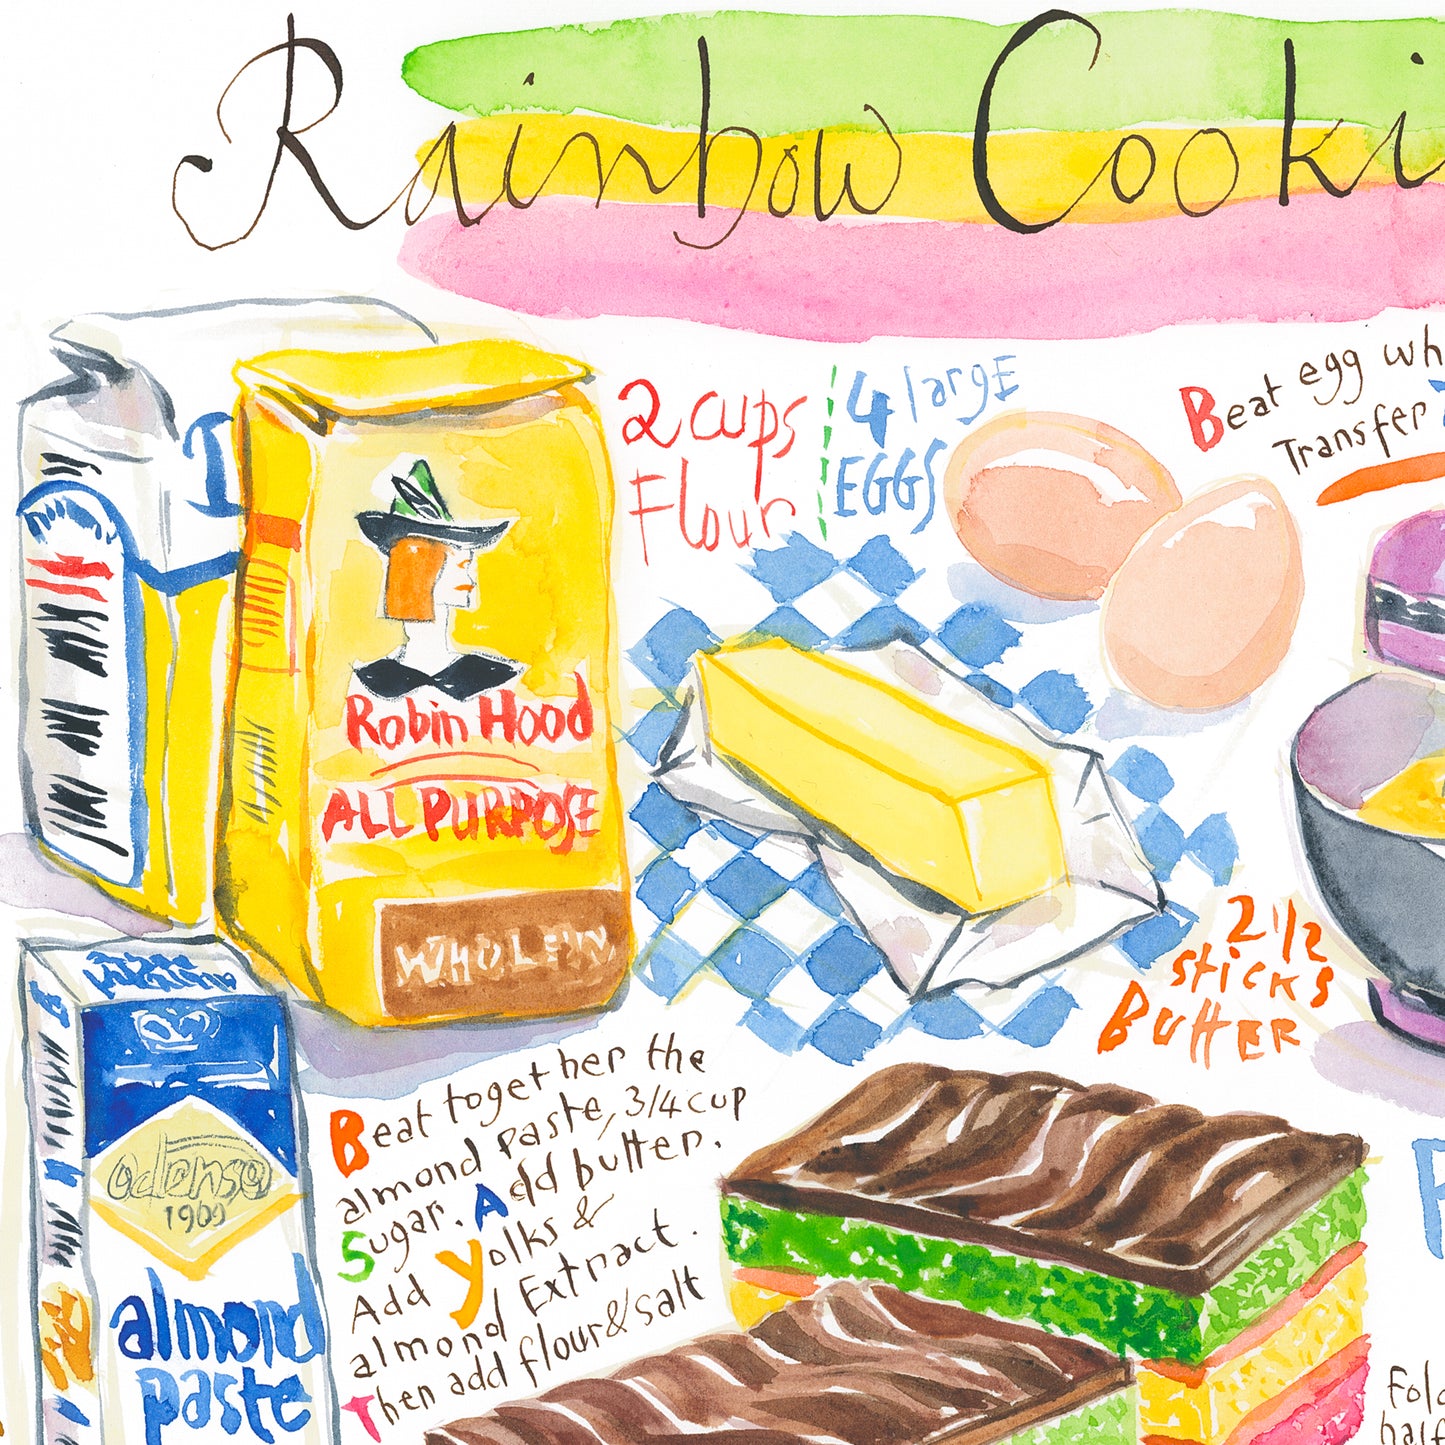 Rainbow Cooki
2 cups
Flour
4 large
EGGS
Beat egg wh
Transfer
Robin Hood
ALL PURPOSE
WHOLE
2 1/2
sticks
Butter
Beat together the
almond paste, 3/4 cup
Sugar. Add butter.
Add Yolks &
almond Extract.
Then add flour & salt
odense
1909
almond
paste
Fold
half